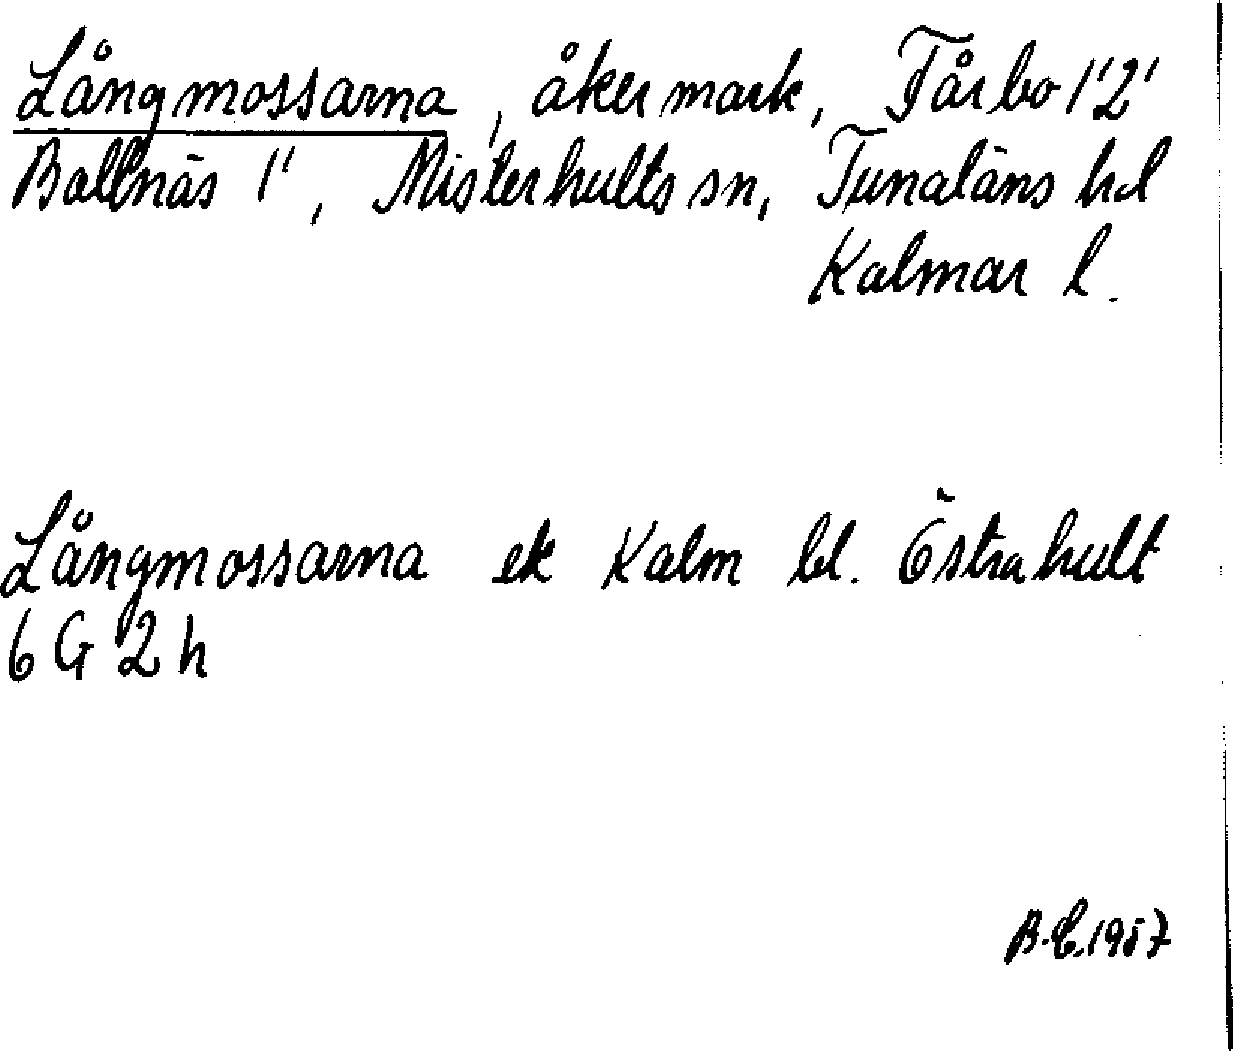 Långmossarna, åkermark, Fårbo 1'2'
Ballnäs 1', Misterhults sn, Tunaläns hd
Kalmar l.
Långmossarna ek Kalm bl. Östrahult
6 G 2 h
B.E. 1957